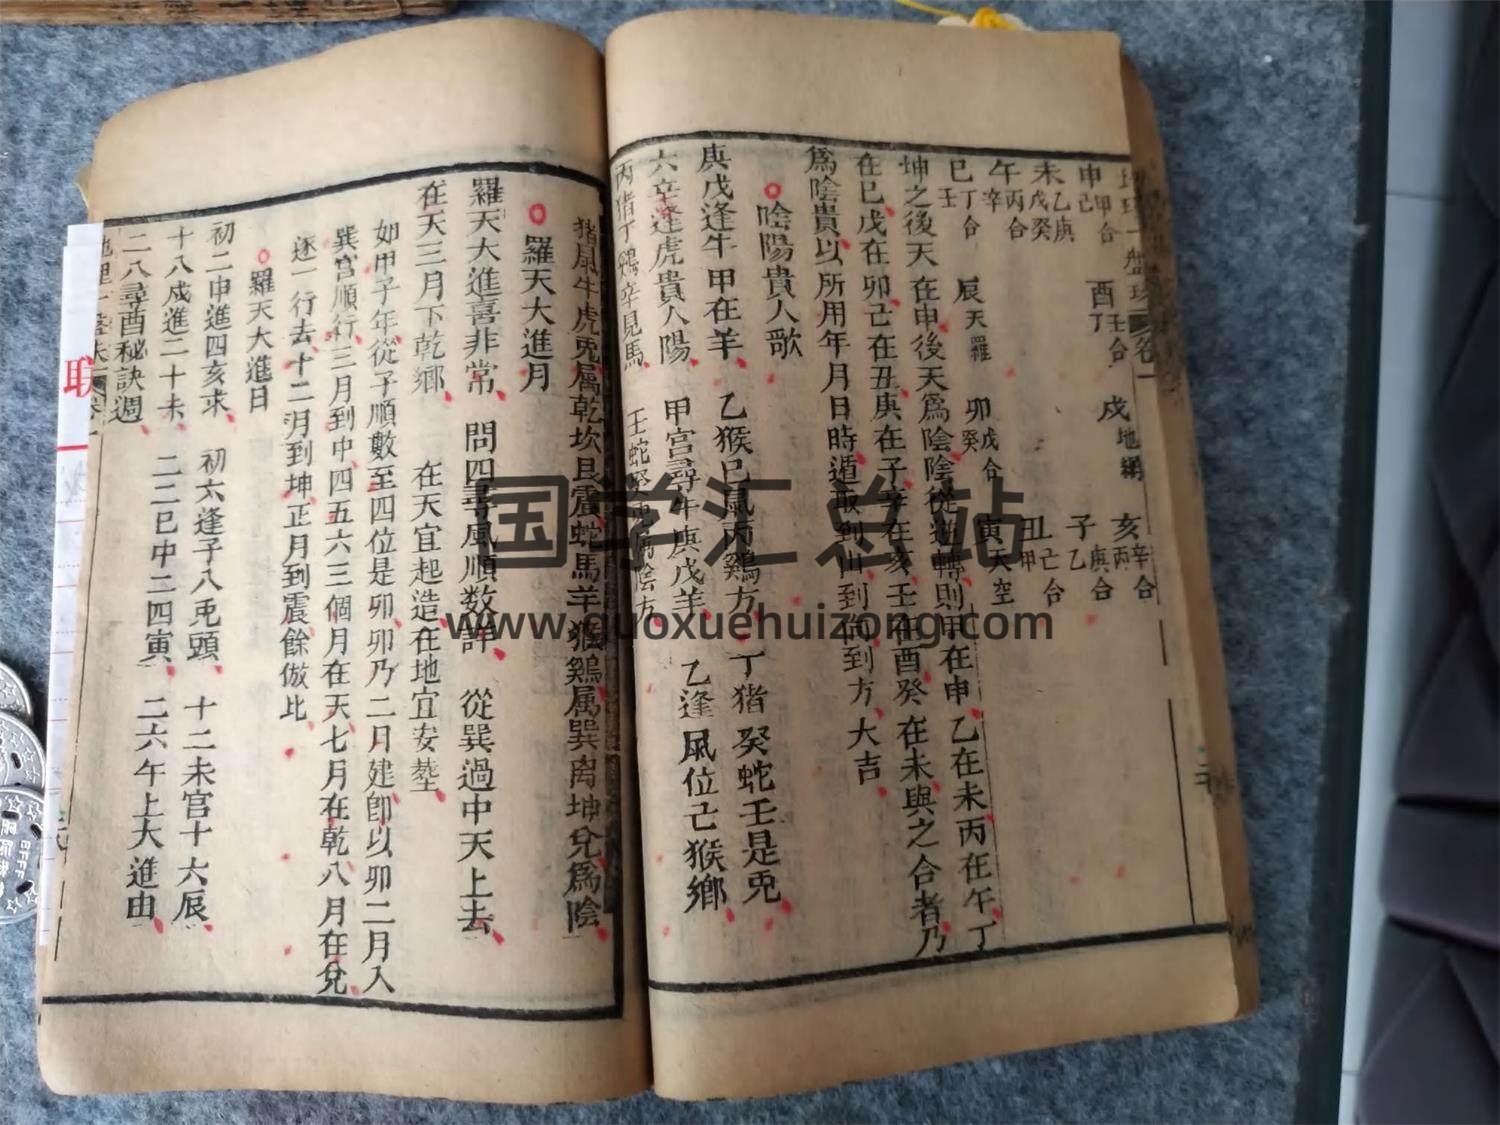 申 甲合己 酉 壬合丁 戌 地網 亥 辛合丙
未 乙庚戊癸 子 庚合乙
午 丙合辛 丑 己合甲
巳 丁合壬 辰 天羅 卯 戊合癸 寅 天空
坤之後天在申後天爲陰陰從逆轉則甲在申乙在未丙在午丁
在巳戊在卯己在丑庚在子辛在亥壬在酉癸在未與之合者乃
爲陰貴以所用年月日時遁取到山到向到方大吉
陰陽貴人歌
庚戊逢牛甲在羊 乙猴巳鼠丙鷄方 丁猪癸蛇壬是兎
六辛逢虎貴人陽 甲宮尋牛庚戊羊 乙逢鼠位己猴鄉
丙猪丁鷄辛見馬 壬蛇癸
猪鼠牛虎兎属乾坎艮震蛇馬羊猴鷄属巽离坤兌爲陰
羅天大進月
羅天大進喜非常 問四尋風順数詳 從巽過中天上去
在天三月下乾鄉 在天宜起造在地宜安塟
如甲子年從子順數至四位是卯卯乃二月建卽以卯二月入
巽宮順行三月到中四五六三個月在天七月在乾八月在兌
逐一行去十二月到坤正月到震餘倣此
羅天大進日
初二申進四亥求 初六逢子八兎頭 十二未官十六辰
十八戍進二十未 二二巳中二四寅 二六午上大進由
二八尋酉秘訣週
国学汇总站
www.guoxuehuizong.com
联